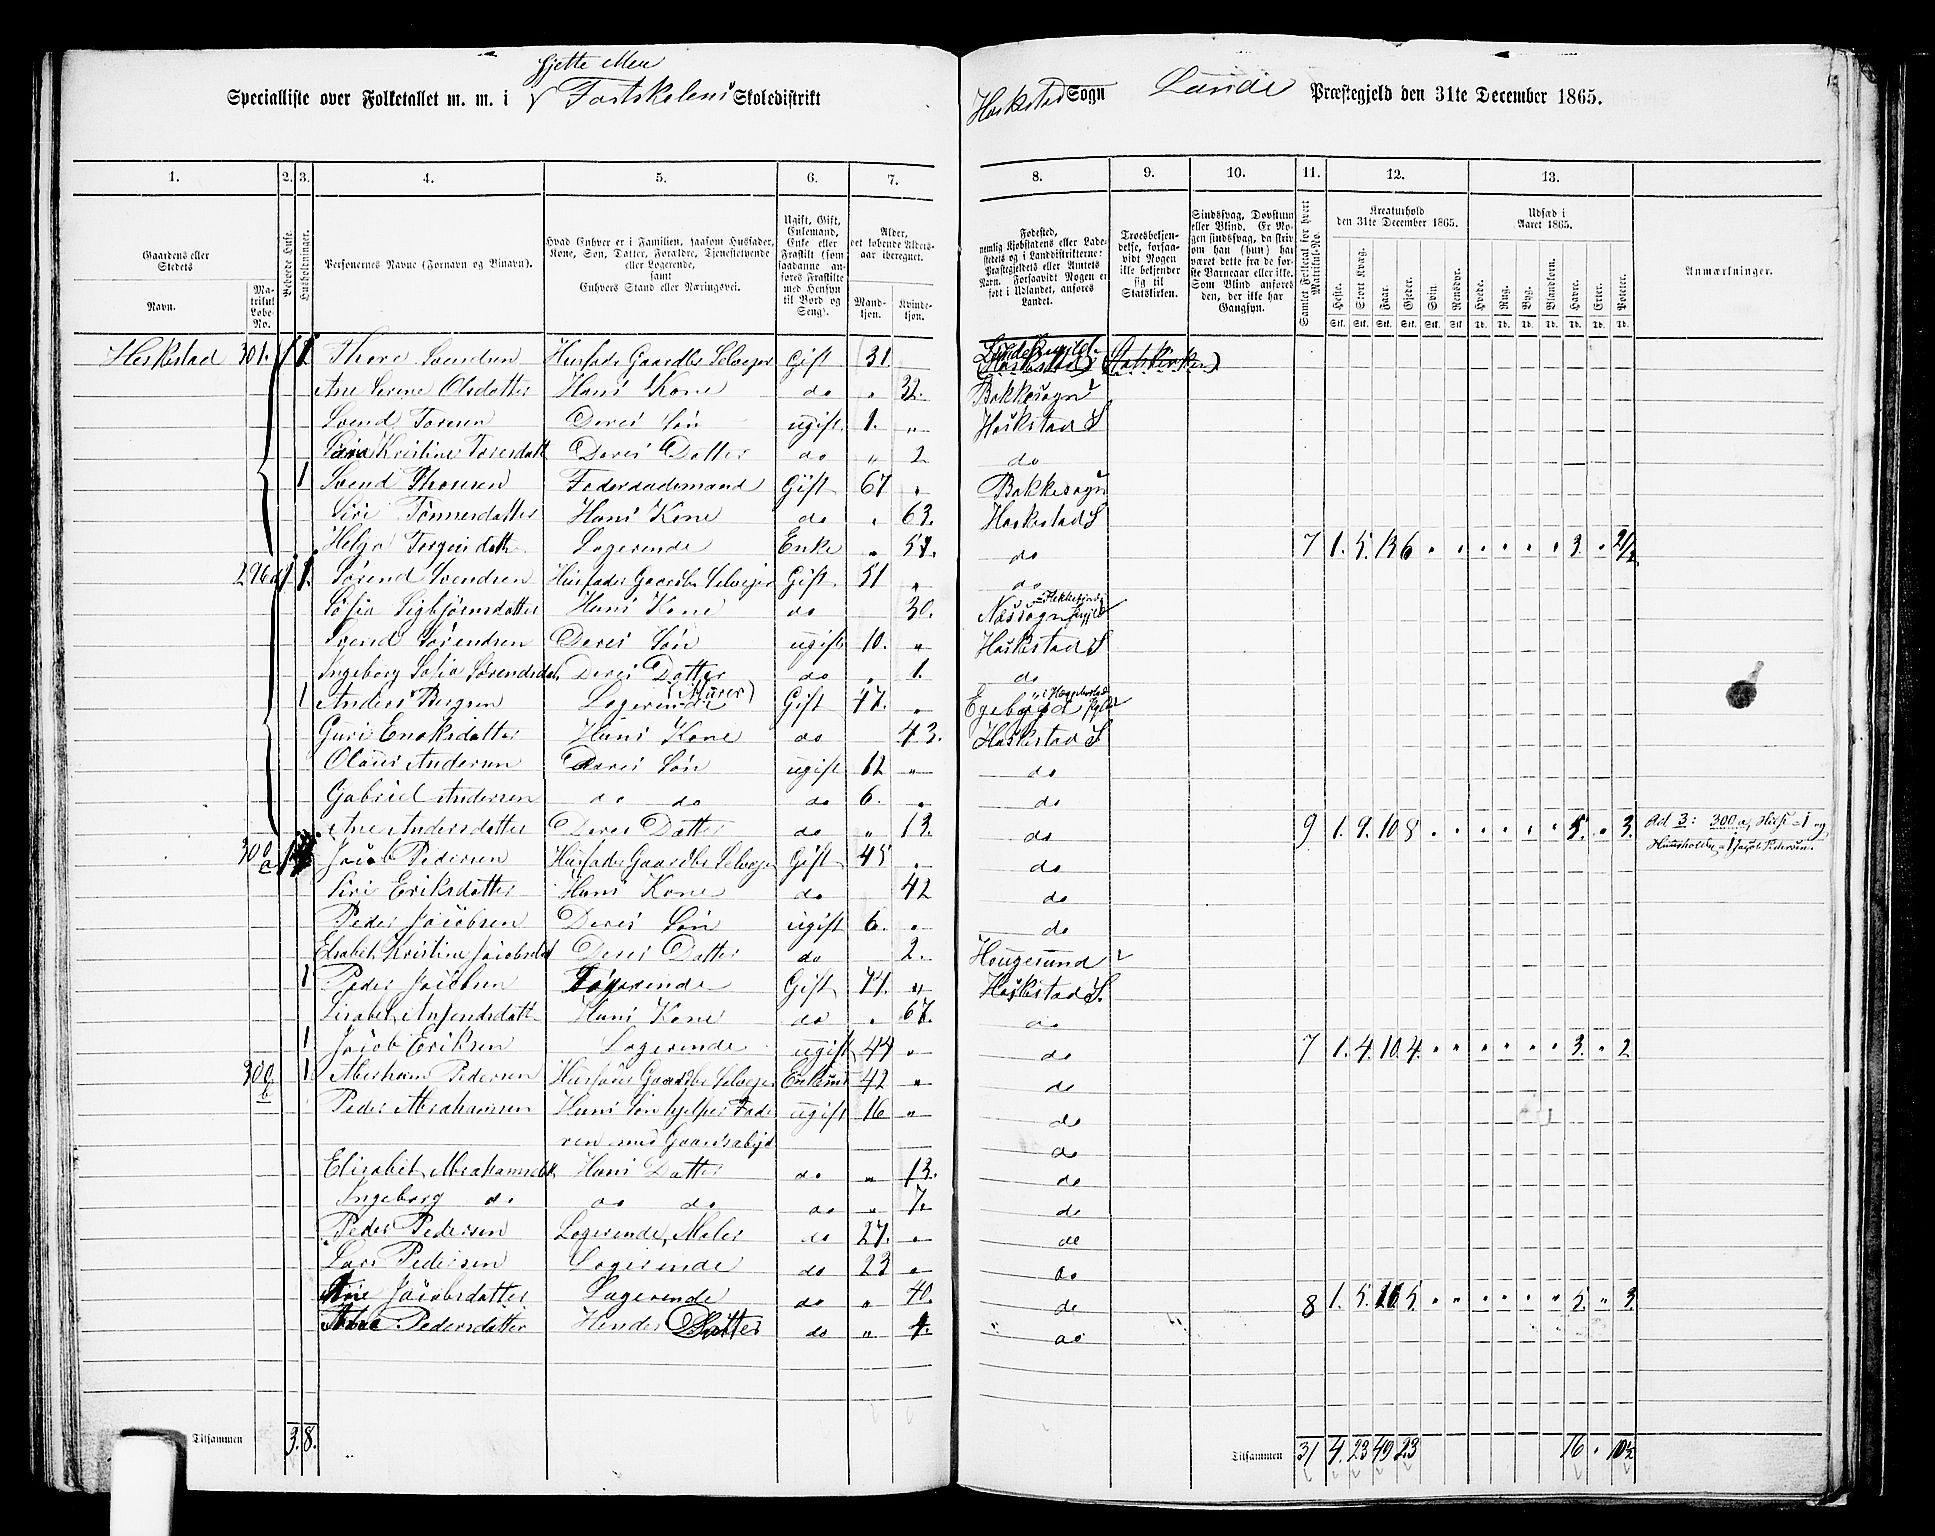 Gjette Men
Specialliste over Folketallet m. m. i Fastskolens Skoledistrikt
Heskestad Sogn Lunde Præstegjeld den 31te December 1865.
1. 2. 3. 4. 5. 6. 7. 8. 9. 10. 11. 12. 13.
Gaardens eller Stedets
Navn.
Matrikul Løbe-No.
Beboede Huse.
Husholdninger.
Personernes Navne (Fornavn og Binavn).
Hvad Enhver er i Familien, saasom Husfader, Kone, Søn, Datter, Forældre, Tjenestetyende eller Logerende, samt Enhvers Stand eller Næringsvei.
Ugift, Gift, Enkemand, Enke eller Fraskilt (som saadanne anføres Fraskilte med Hensyn til Bord og Seng).
Alder, det løbende Alders-aar iberegnet.
Mandkjøn. Kvindekjøn.
Fødested, nemlig Kjøbstadens eller Ladestedets og i Landdistrikterne: Præstegjeldets eller Amtets Navn. Forsaavidt Nogen er født i Udlandet, anføres Landet.
Troesbekjendelse, forsaavidt Nogen ikke bekjender sig til Statskirken.
Sindssvag, Døvstum eller Blind. Er Nogen sindssvag, da skriv om han (hun) har været dette fra de første Barneaar eller ikke. Som Blind anføres den, der ikke har Gangsyn.
Gamlet Fælletal for hvert Matrikul-No.
Kreaturhold den 31te December 1865.
Heste. Stort Kvæg. Faar. Gjeder. Svin. Rensdyr.
Udsæd i Aaret 1865.
Hvede. Rug. Byg. Blandkorn. Havre. Erter. Poteter.
Anmærkninger.
Heskestad 301. 1 1 Thore Svendsen Husfader Gaardbr Selveier Gift 31 Heskestad (Statskirken)
Ane Serine Olsdatter Hans Kone do " 32. Bakkesogn
Svend Toresen Deres Søn ugift 1. " Heskestad S
Sara Kristine Toresdatt Deres Datter do " 2 do
1 Svend Thorsen Føderaadsmand Gift 67 " Bakkesogn
Siri Tønnesdatter Hans Kone do " 63. Heskestad S
Helga Torgersdatt Logerende Enke " 51. do 7 1. 5. 13 6 3. 2½
296 1 1. Sørend Svendsen Husfader Gaardbr Selveier Gift 51 " do
Sofia Sigbjørnsdatter Hans Kone do 30. Næssogn
Svend Sørendsen Deres Søn ugift 10. " Heskestad S
Ingeborg Sofia Sørendsdat Deres Datter do " 1. do
1 Anders Bergsen Logerende (Murer) Gift 47. "
Guri Enoksdatter Hans Kone do 43. Heskestad S
Olaus Andersen Deres Søn ugift 12 " do
Gabriel Andersen do do do 6. " do
Ane Andersdatter Deres Datter do " 13. do 9 1. 9. 10 8 5. 3. Ad 3: 300a, Huse = 1 og
300 a Jacob Pedersen Husfader Gaardbr Selveier Gift 45 " do Husholdn = 1 Jacob Pedersen.
Siri Eriksdatter Hans Kone do 42 do
Peder Jacobsen Deres Søn ugift 6. " do
Elisabet Kristine Jacobsdat Deres Datter do 2. Hougesund
1 Peder Jacobsen Logerende Gift 74. " Heskestad S.
Lisabet Anfendsdatt Hans Kone do " 67. do
1 Jacob Eriksen Logerende ugift 44 " do 7 1. 4. 10. 4. 3. 2
300 b 1 Abraham Pedersen Husfader Gaardbr Selveier Enkem 42 " do
Peder Abrahamsen Hans Søn hjelper Fade ugift 16 " do
ren med Gaardsabejd do
Elisabet Abrahamsdatt Hans Datter do " 13. do
Ingeborg do do do do " 7. do
Peder Pedersen Logerende, Maler do 27. " do
Lars Pedersen Logerende do 23 " do
Ane Jacobsdatter Logerende do " 40. do 8 1. 5. 16 5 5. " 3
Pedersdatter Hendes Datter do " 1. do
Tilsammen 3. 8. Tilsammen 31 4. 23 49 23 16 10½